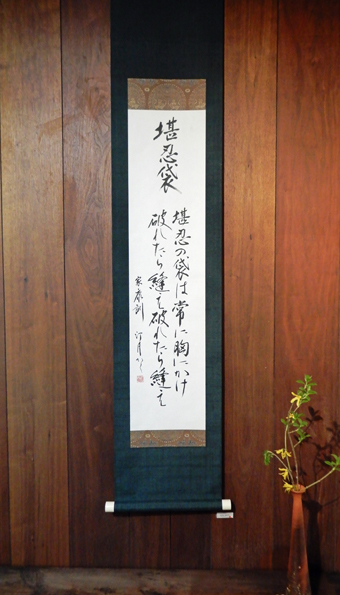 堪忍袋
堪忍の袋は常に胸にかけ
破れたら縫え破れたら縫え
家康訓